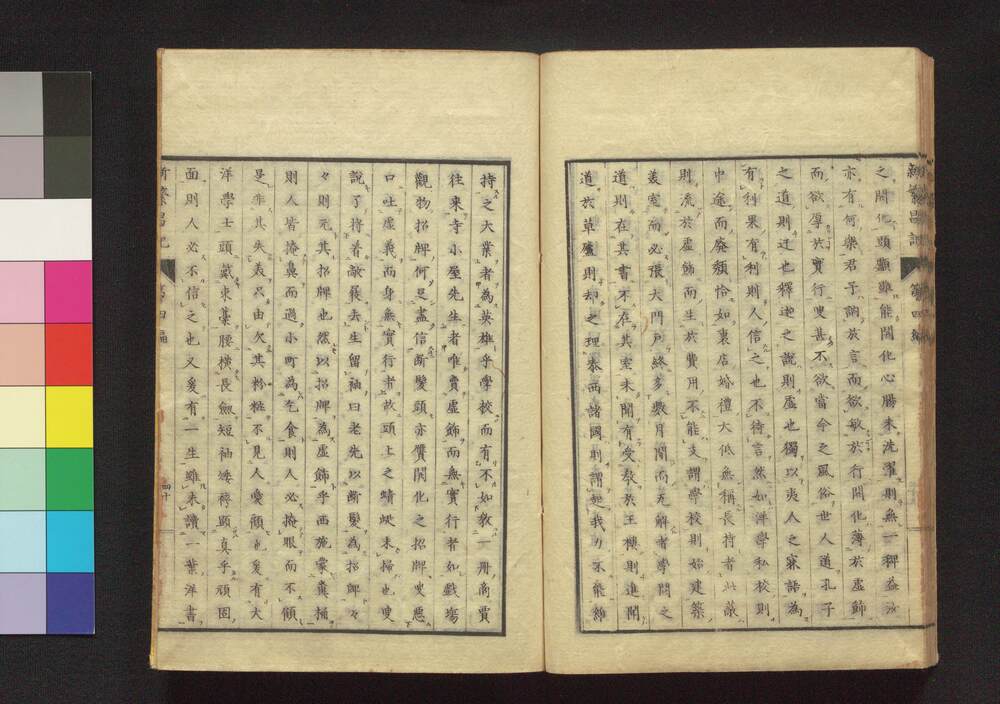 之開化頭顱雖能開化心腸未洗濯則無一稗益汝
亦有何樂君子訥於言而欲敏於行開化薄於虛飾
而欲厚於實行叟甚不欲當今之風俗世人道孔子
之道則迂也釋迦之說則虛也獨以夷人之寐語為
有利果有利則人信之也不待言然如洋學私校則
中途而廢頽恰如裏店婚禮大低無稱長持者此蓋
則流於虛飾而生於費用不能支謂學校則始建築
美室而必張大門戶終多數月間而瓦解者學問之
道則在其書不在其室未聞有受教於王樓則進聞
道於草廬則却之理泰西諸國則謂起我力不能維
持之大業者為英雄乎學校而有不如教一冊商賈
往來寺小屋先生者唯賣虛飾而無實行者如戲塲
觀物招牌何足盡信斷髮頭亦贋開化之招牌叟惡
口吐虛義而身無實行者故頭上之蜻蜓未掃也叟
說了將着敝屐去生留袖曰老先以斷髮為招牌々
々則元其招牌也然以招牌為虛飾乎西施蒙糞桶
則人皆掩鼻而過小町為乞食則人必掩眼而不顧
是非其失表只由欠其粉粧不見人愛顧也爰有大
洋學士頭戴束藁腰橫長劍短袖矮袴顕真乎頑固
面則人必不信之也又爰有一生雖未讀一葉洋書
新繁昌記 第四編
四十